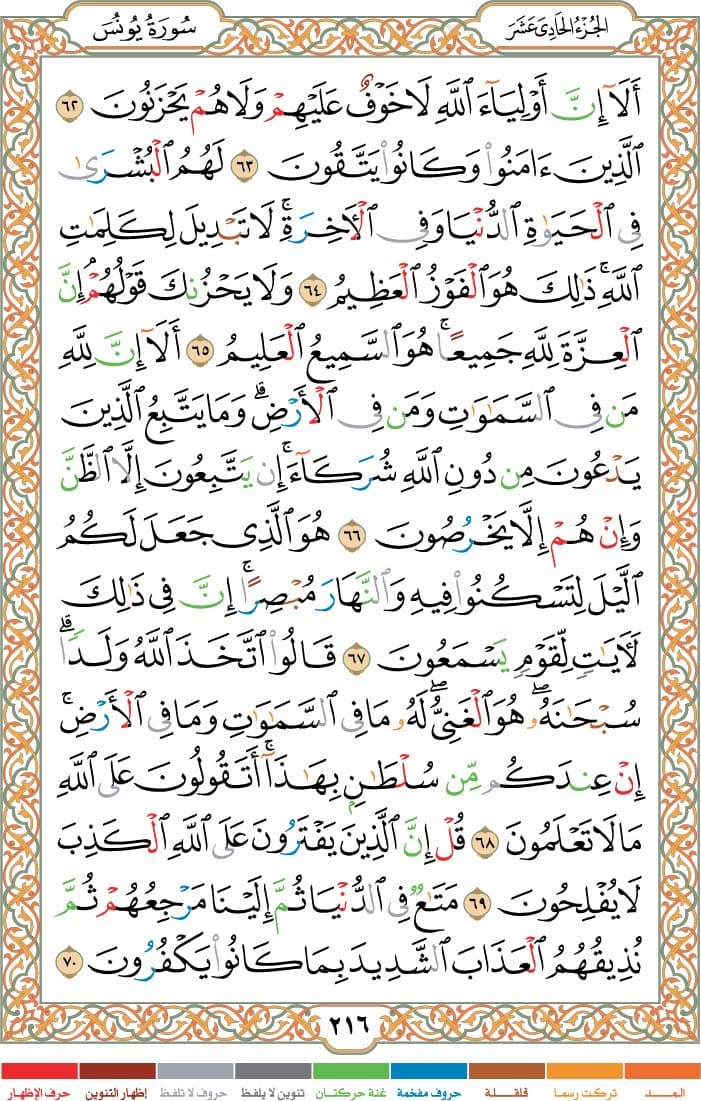 سُورَةُ يُونُسَ
الجُزْءُ الحَادِي عَشَرَ
أَلَآ إِنَّ أَوْلِيَآءَ ٱللَّهِ لَا خَوْفٌ عَلَيْهِمْ وَلَا هُمْ يَحْزَنُونَ ٦٢
ٱلَّذِينَ ءَامَنُوا۟ وَكَانُوا۟ يَتَّقُونَ ٦٣ لَهُمُ ٱلْبُشْرَىٰ
فِى ٱلْحَيَوٰةِ ٱلدُّنْيَا وَفِى ٱلْءَاخِرَةِ ۚ لَا تَبْدِيلَ لِكَلِمَٰتِ
ٱللَّهِ ۚ ذَٰلِكَ هُوَ ٱلْفَوْزُ ٱلْعَظِيمُ ٦٤ وَلَا يَحْزُنكَ قَوْلُهُمْ ۘ إِنَّ
ٱلْعِزَّةَ لِلَّهِ جَمِيعًا ۚ هُوَ ٱلسَّمِيعُ ٱلْعَلِيمُ ٦٥ أَلَآ إِنَّ لِلَّهِ
مَن فِى ٱلسَّمَٰوَٰتِ وَمَن فِى ٱلْأَرْضِ ۗ وَمَا يَتَّبِعُ ٱلَّذِينَ
يَدْعُونَ مِن دُونِ ٱللَّهِ شُرَكَآءَ ۚ إِن يَتَّبِعُونَ إِلَّا ٱلظَّنَّ
وَإِنْ هُمْ إِلَّا يَخْرُصُونَ ٦٦ هُوَ ٱلَّذِى جَعَلَ لَكُمُ
ٱلَّيْلَ لِتَسْكُنُوا۟ فِيهِ وَٱلنَّهَارَ مُبْصِرًا ۚ إِنَّ فِى ذَٰلِكَ
لَءَايَٰتٍ لِّقَوْمٍ يَسْمَعُونَ ٦٧ قَالُوا۟ ٱتَّخَذَ ٱللَّهُ وَلَدًا ۗ
سُبْحَٰنَهُۥ ۖ هُوَ ٱلْغَنِىُّ ۖ لَهُۥ مَا فِى ٱلسَّمَٰوَٰتِ وَمَا فِى ٱلْأَرْضِ ۚ
إِنْ عِندَكُم مِّن سُلْطَٰنٍۭ بِهَٰذَآ ۚ أَتَقُولُونَ عَلَى ٱللَّهِ
مَا لَا تَعْلَمُونَ ٦٨ قُلْ إِنَّ ٱلَّذِينَ يَفْتَرُونَ عَلَى ٱللَّهِ ٱلْكَذِبَ
لَا يُفْلِحُونَ ٦٩ مَتَٰعٌ فِى ٱلدُّنْيَا ثُمَّ إِلَيْنَا مَرْجِعُهُمْ ثُمَّ
نُذِيقُهُمُ ٱلْعَذَابَ ٱلشَّدِيدَ بِمَا كَانُوا۟ يَكْفُرُونَ ٧٠
٢١٦
المـــد تركت رسما قلقـلة حروف مفخمة غنة حركتان تنوين لا يلفظ حروف لا تلفظ إظهار التنوين حرف الإظهار